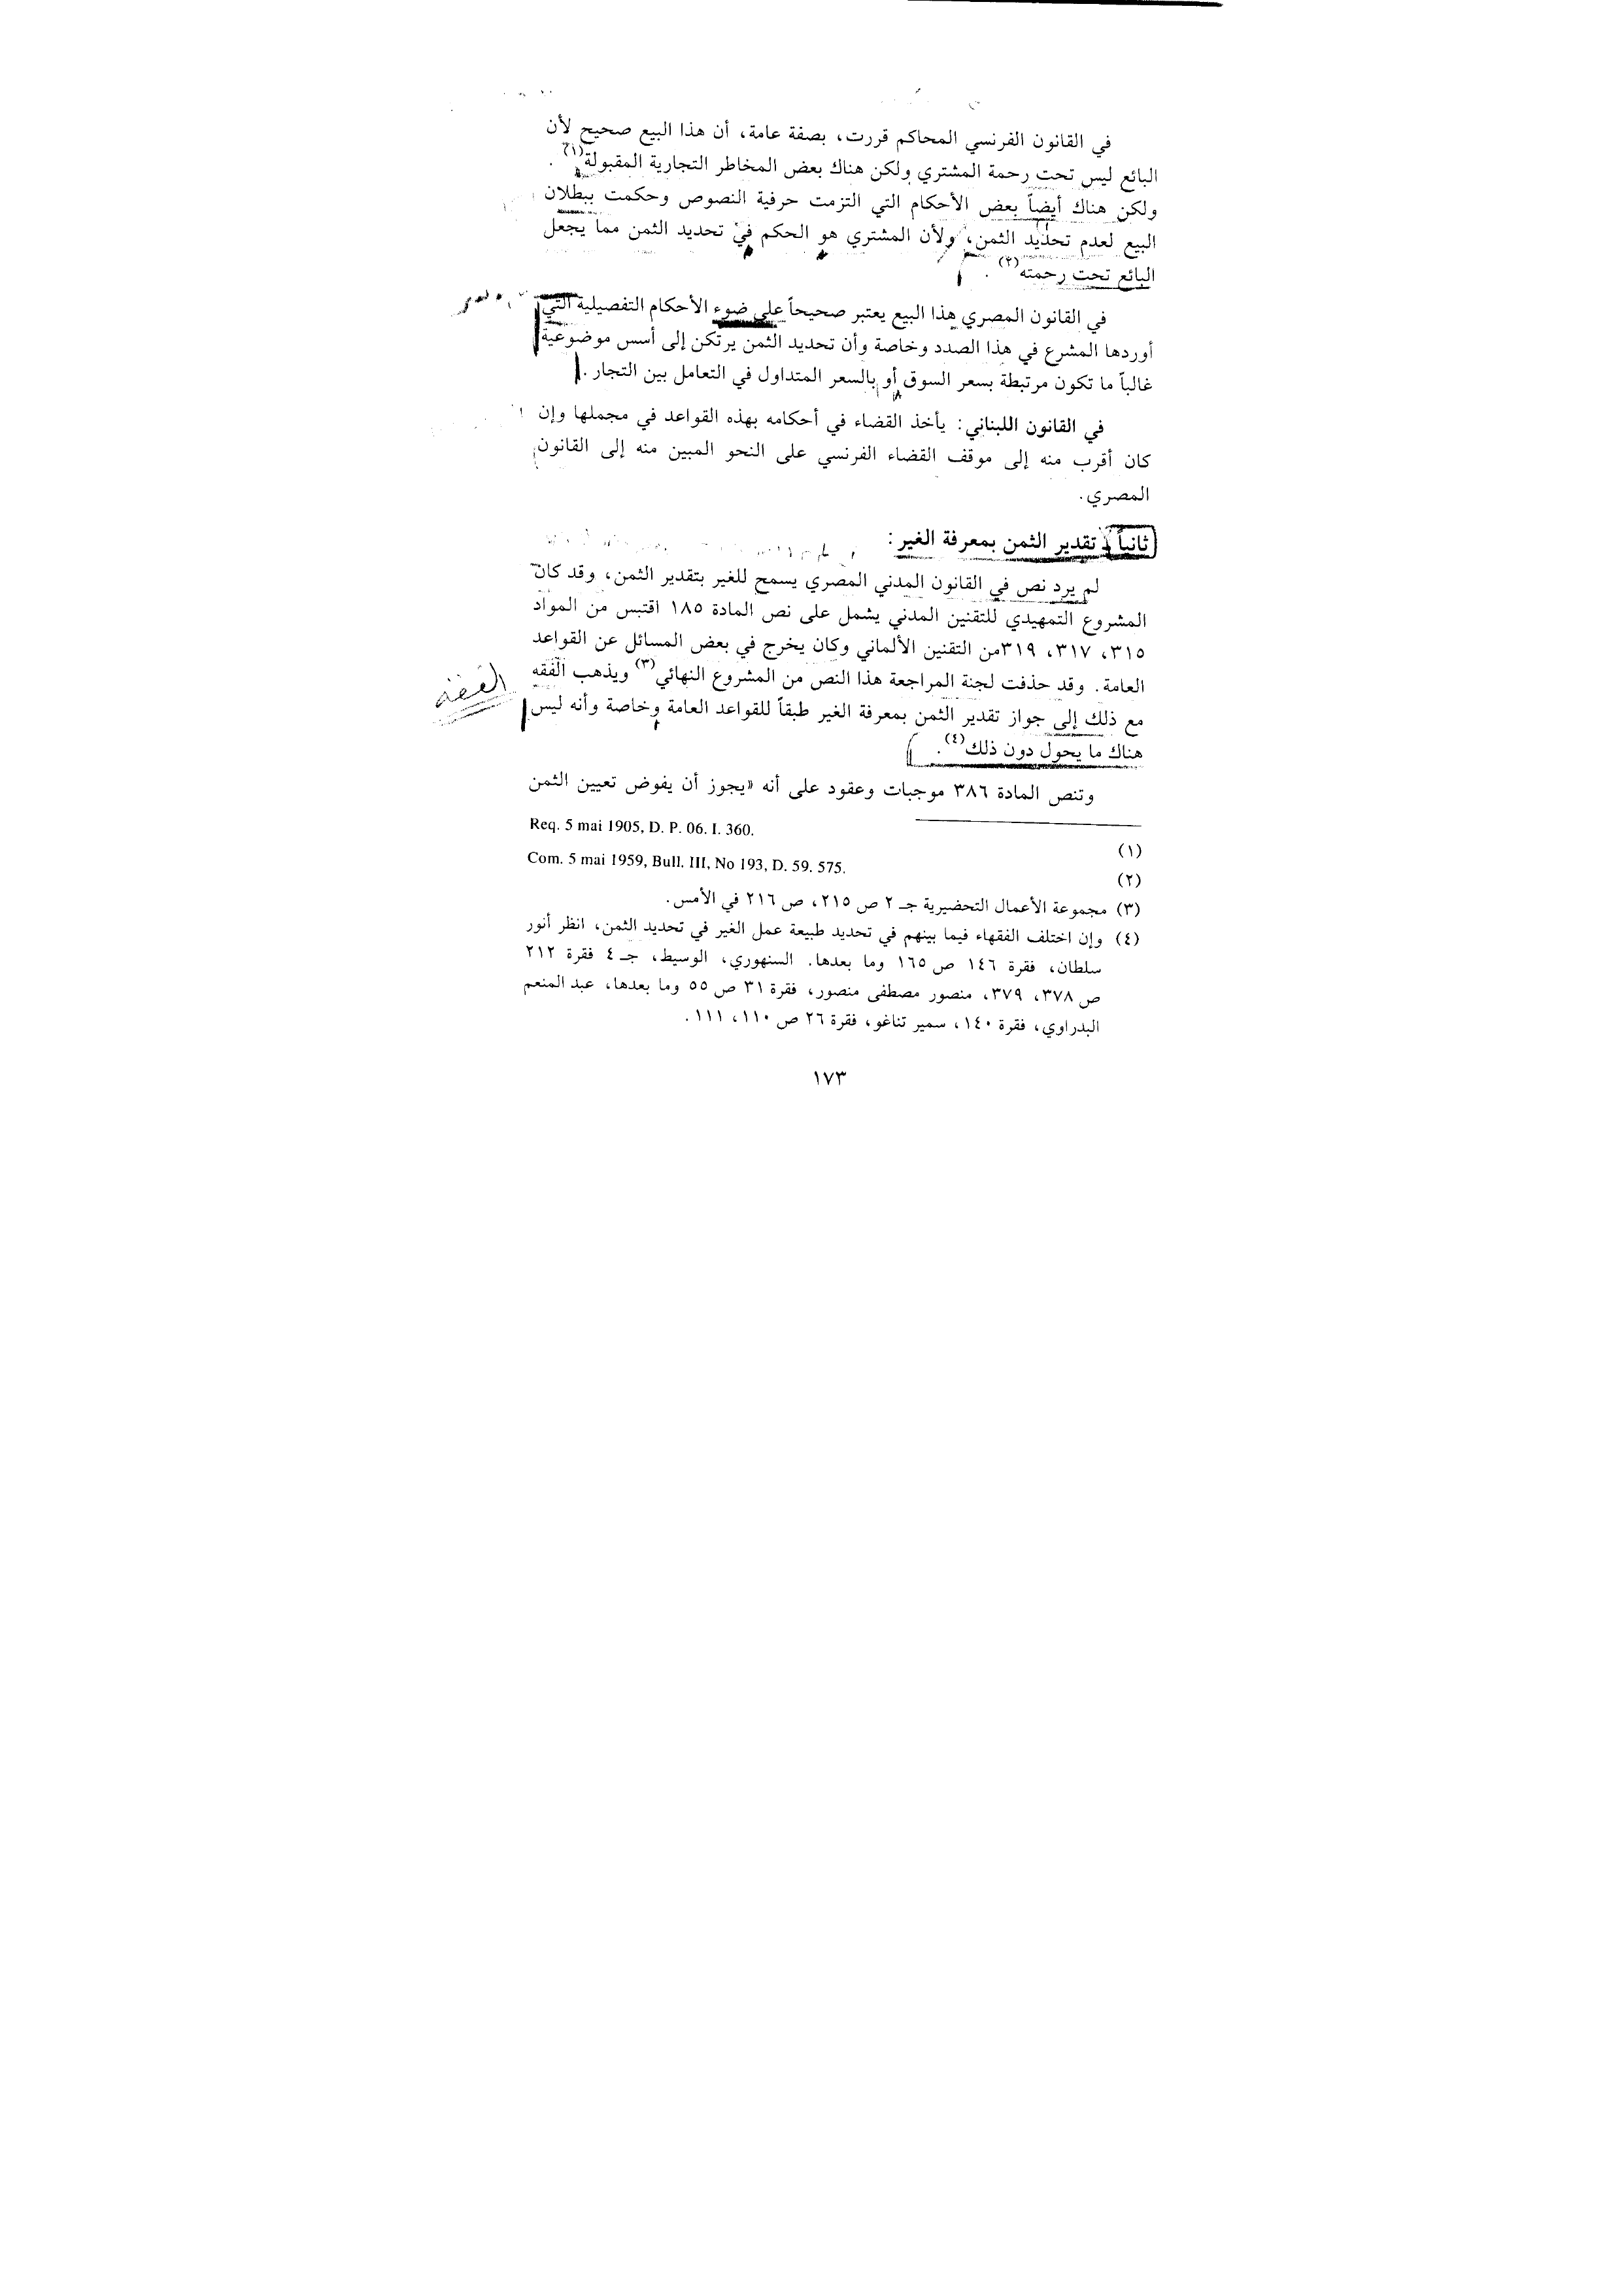 في القانون الفرنسي المحاكم قررت، بصفة عامة، أن هذا البيع صحيح لأن
البائع ليس تحت رحمة المشتري ولكن هناك بعض المخاطر التجارية المقبولة(١).
ولكن هناك أيضاً بعض الأحكام التي التزمت حرفية النصوص وحكمت ببطلان
البيع لعدم تحديد الثمن، ولأن المشتري هو الحكم في تحديد الثمن مما يجعل
البائع تحت رحمته(٢).
في القانون المصري هذا البيع يعتبر صحيحاً على ضوء الأحكام التفصيلية التي
أوردها المشرع في هذا الصدد وخاصة وأن تحديد الثمن يرتكن إلى أسس موضوعية
غالباً ما تكون مرتبطة بسعر السوق أو بالسعر المتداول في التعامل بين التجار.
في القانون اللبناني: يأخذ القضاء في أحكامه بهذه القواعد في مجملها وإن
كان أقرب منه إلى موقف القضاء الفرنسي على النحو المبين منه إلى القانون
المصري.
ثانياً: تقدير الثمن بمعرفة الغير:
لم يرد نص في القانون المدني المصري يسمح للغير بتقدير الثمن، وقد كان
المشروع التمهيدي للتقنين المدني يشمل على نص المادة ١٨٥ اقتبس من المواد
٣١٥، ٣١٧، ٣١٩من التقنين الألماني وكان يخرج في بعض المسائل عن القواعد
العامة. وقد حذفت لجنة المراجعة هذا النص من المشروع النهائي(٣) ويذهب الفقه
الفقه
مع ذلك إلى جواز تقدير الثمن بمعرفة الغير طبقاً للقواعد العامة وخاصة وأنه ليس
هناك ما يحول دون ذلك(٤).
وتنص المادة ٣٨٦ موجبات وعقود على أنه «يجوز أن يفوض تعيين الثمن
(١) Req. 5 mai 1905, D. P. 06. I. 360.
(٢) Com. 5 mai 1959, Bull. III, No 193, D. 59. 575.
(٣) مجموعة الأعمال التحضيرية جـ ٢ ص ٢١٥، ص ٢١٦ في الأمس.
(٤) وإن اختلف الفقهاء فيما بينهم في تحديد طبيعة عمل الغير في تحديد الثمن، انظر أنور
سلطان، فقرة ١٤٦ ص ١٦٥ وما بعدها. السنهوري، الوسيط، جـ ٤ فقرة ٢١٢
ص ٣٧٨، ٣٧٩، منصور مصطفى منصور، فقرة ٣١ ص ٥٥ وما بعدها، عبد المنعم
البدراوي، فقرة ١٤٠، سمير تناغو، فقرة ٢٦ ص ١١٠، ١١١.
١٧٣